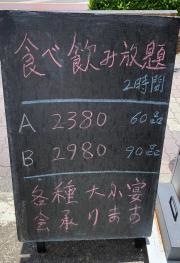 食べ飲み放題
2時間
A 2380 60品
B 2980 90品
各種大小宴
会承ります